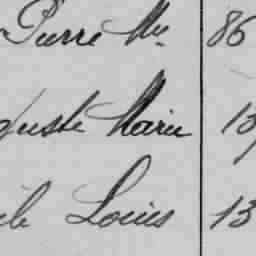 Pierre Me. 86
guste Marie 13
ile Louis 13